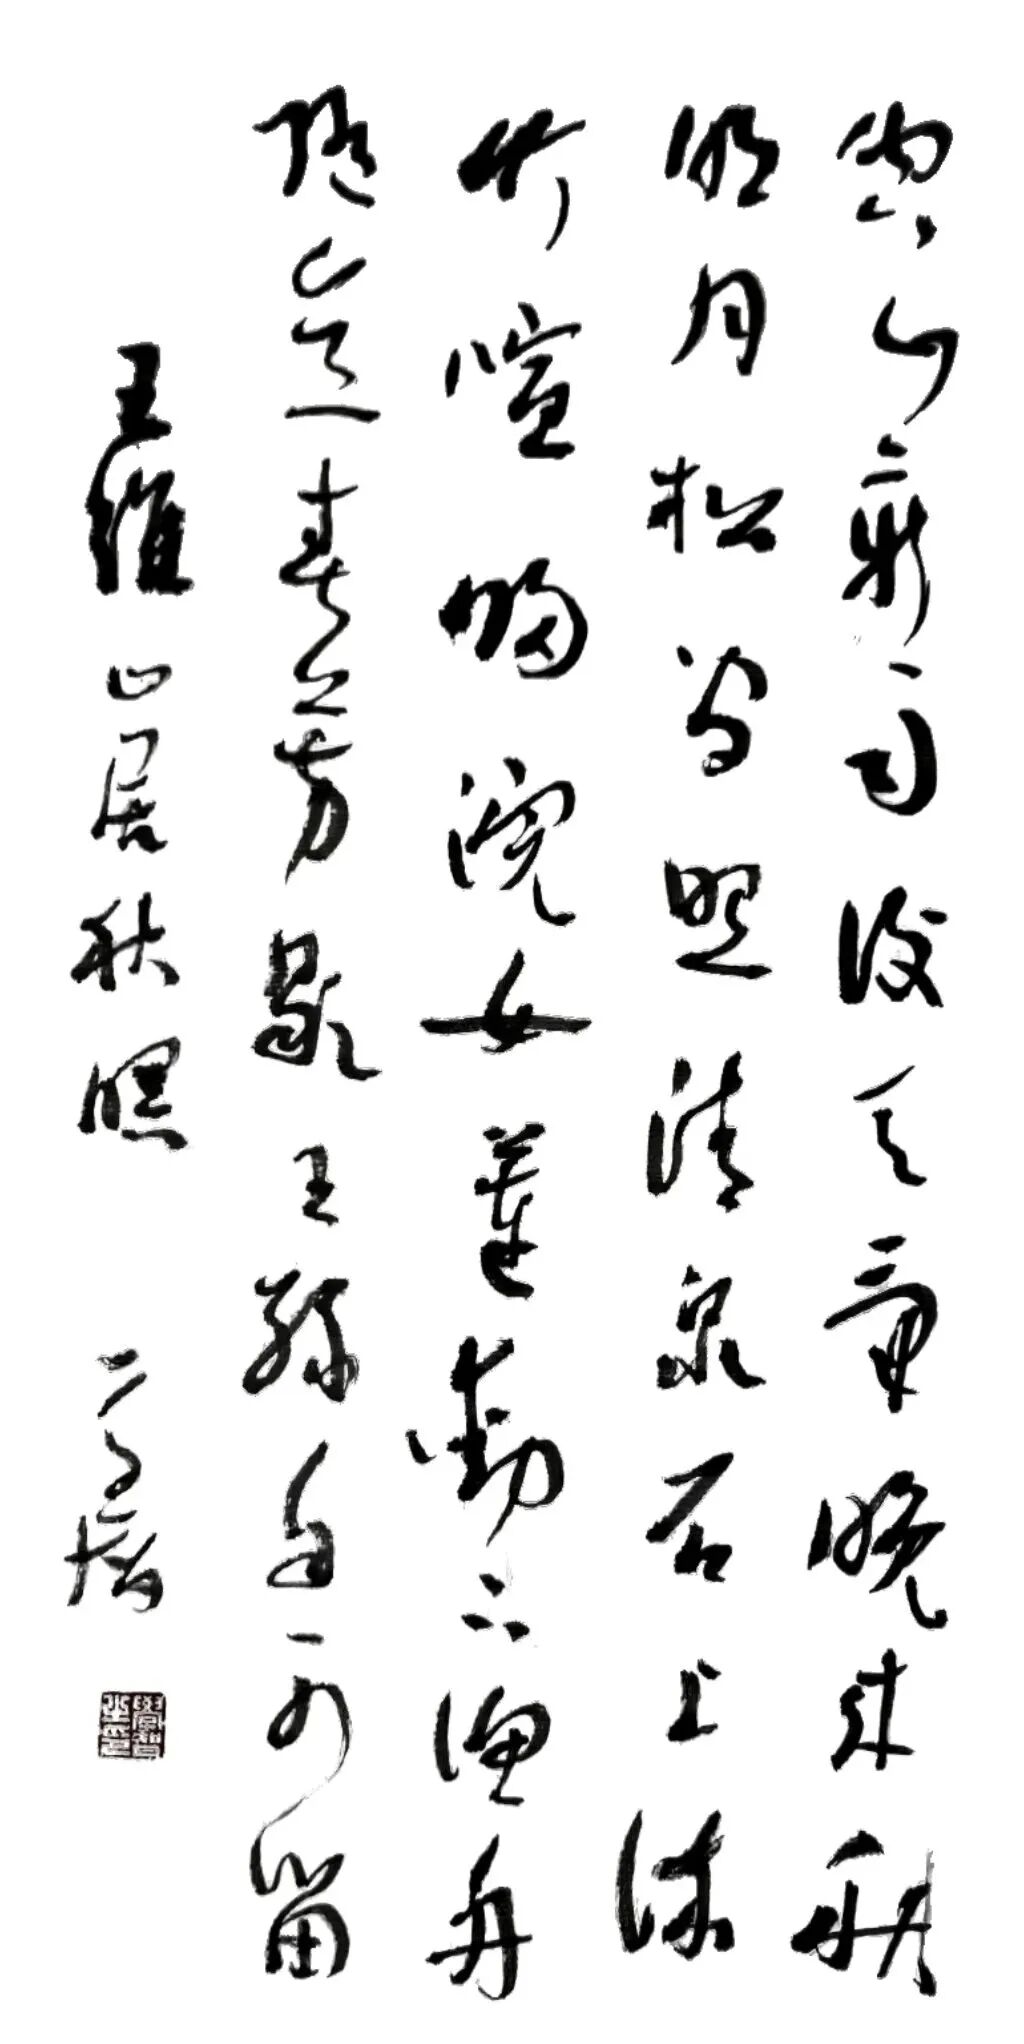 空山新雨后天气晚来秋
明月松间照清泉石上流
竹喧归浣女莲动下渔舟
随意春芳歇王孙自可留
王维山居秋暝